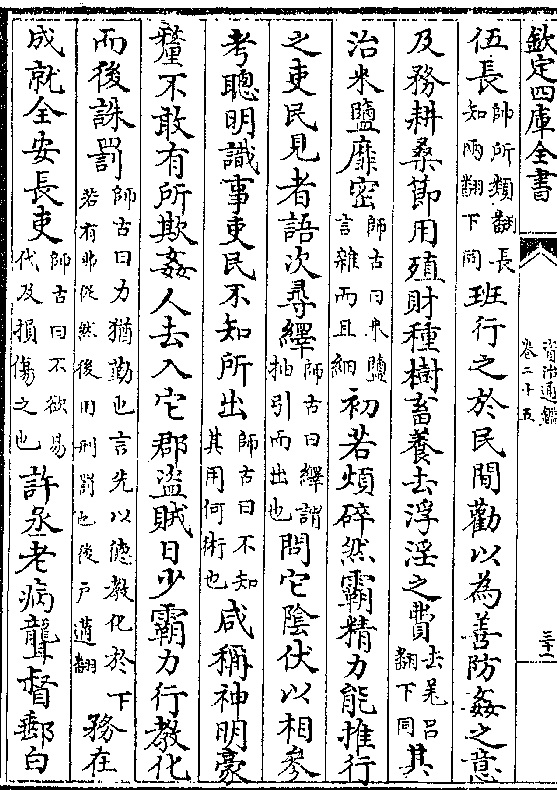 欽定四庫全書
資治通鑑
卷二十五
伍長帥所類翻長知兩翻下同班行之於民間勸以為善防姦之意
及務耕桑節用殖財種樹畜養去浮淫之費去羌呂翻下同其
治米鹽靡密師古曰米鹽言雜而且細初若煩碎然霸精力能推行
之吏民見者語次尋繹師古曰繹謂抽引而出也問它陰伏以相參
考聰明識事吏民不知所出師古曰不知其用何術也咸稱神明豪
釐不敢有所欺姦人去入它郡盜賊日少霸力行教化
而後誅罰師古曰力猶勤也言先以德教化於下若有弗從然後用刑罰也後戶遘翻務在
成就全安長吏師古曰不欲易代及損傷之也許丞老病聾督郵白